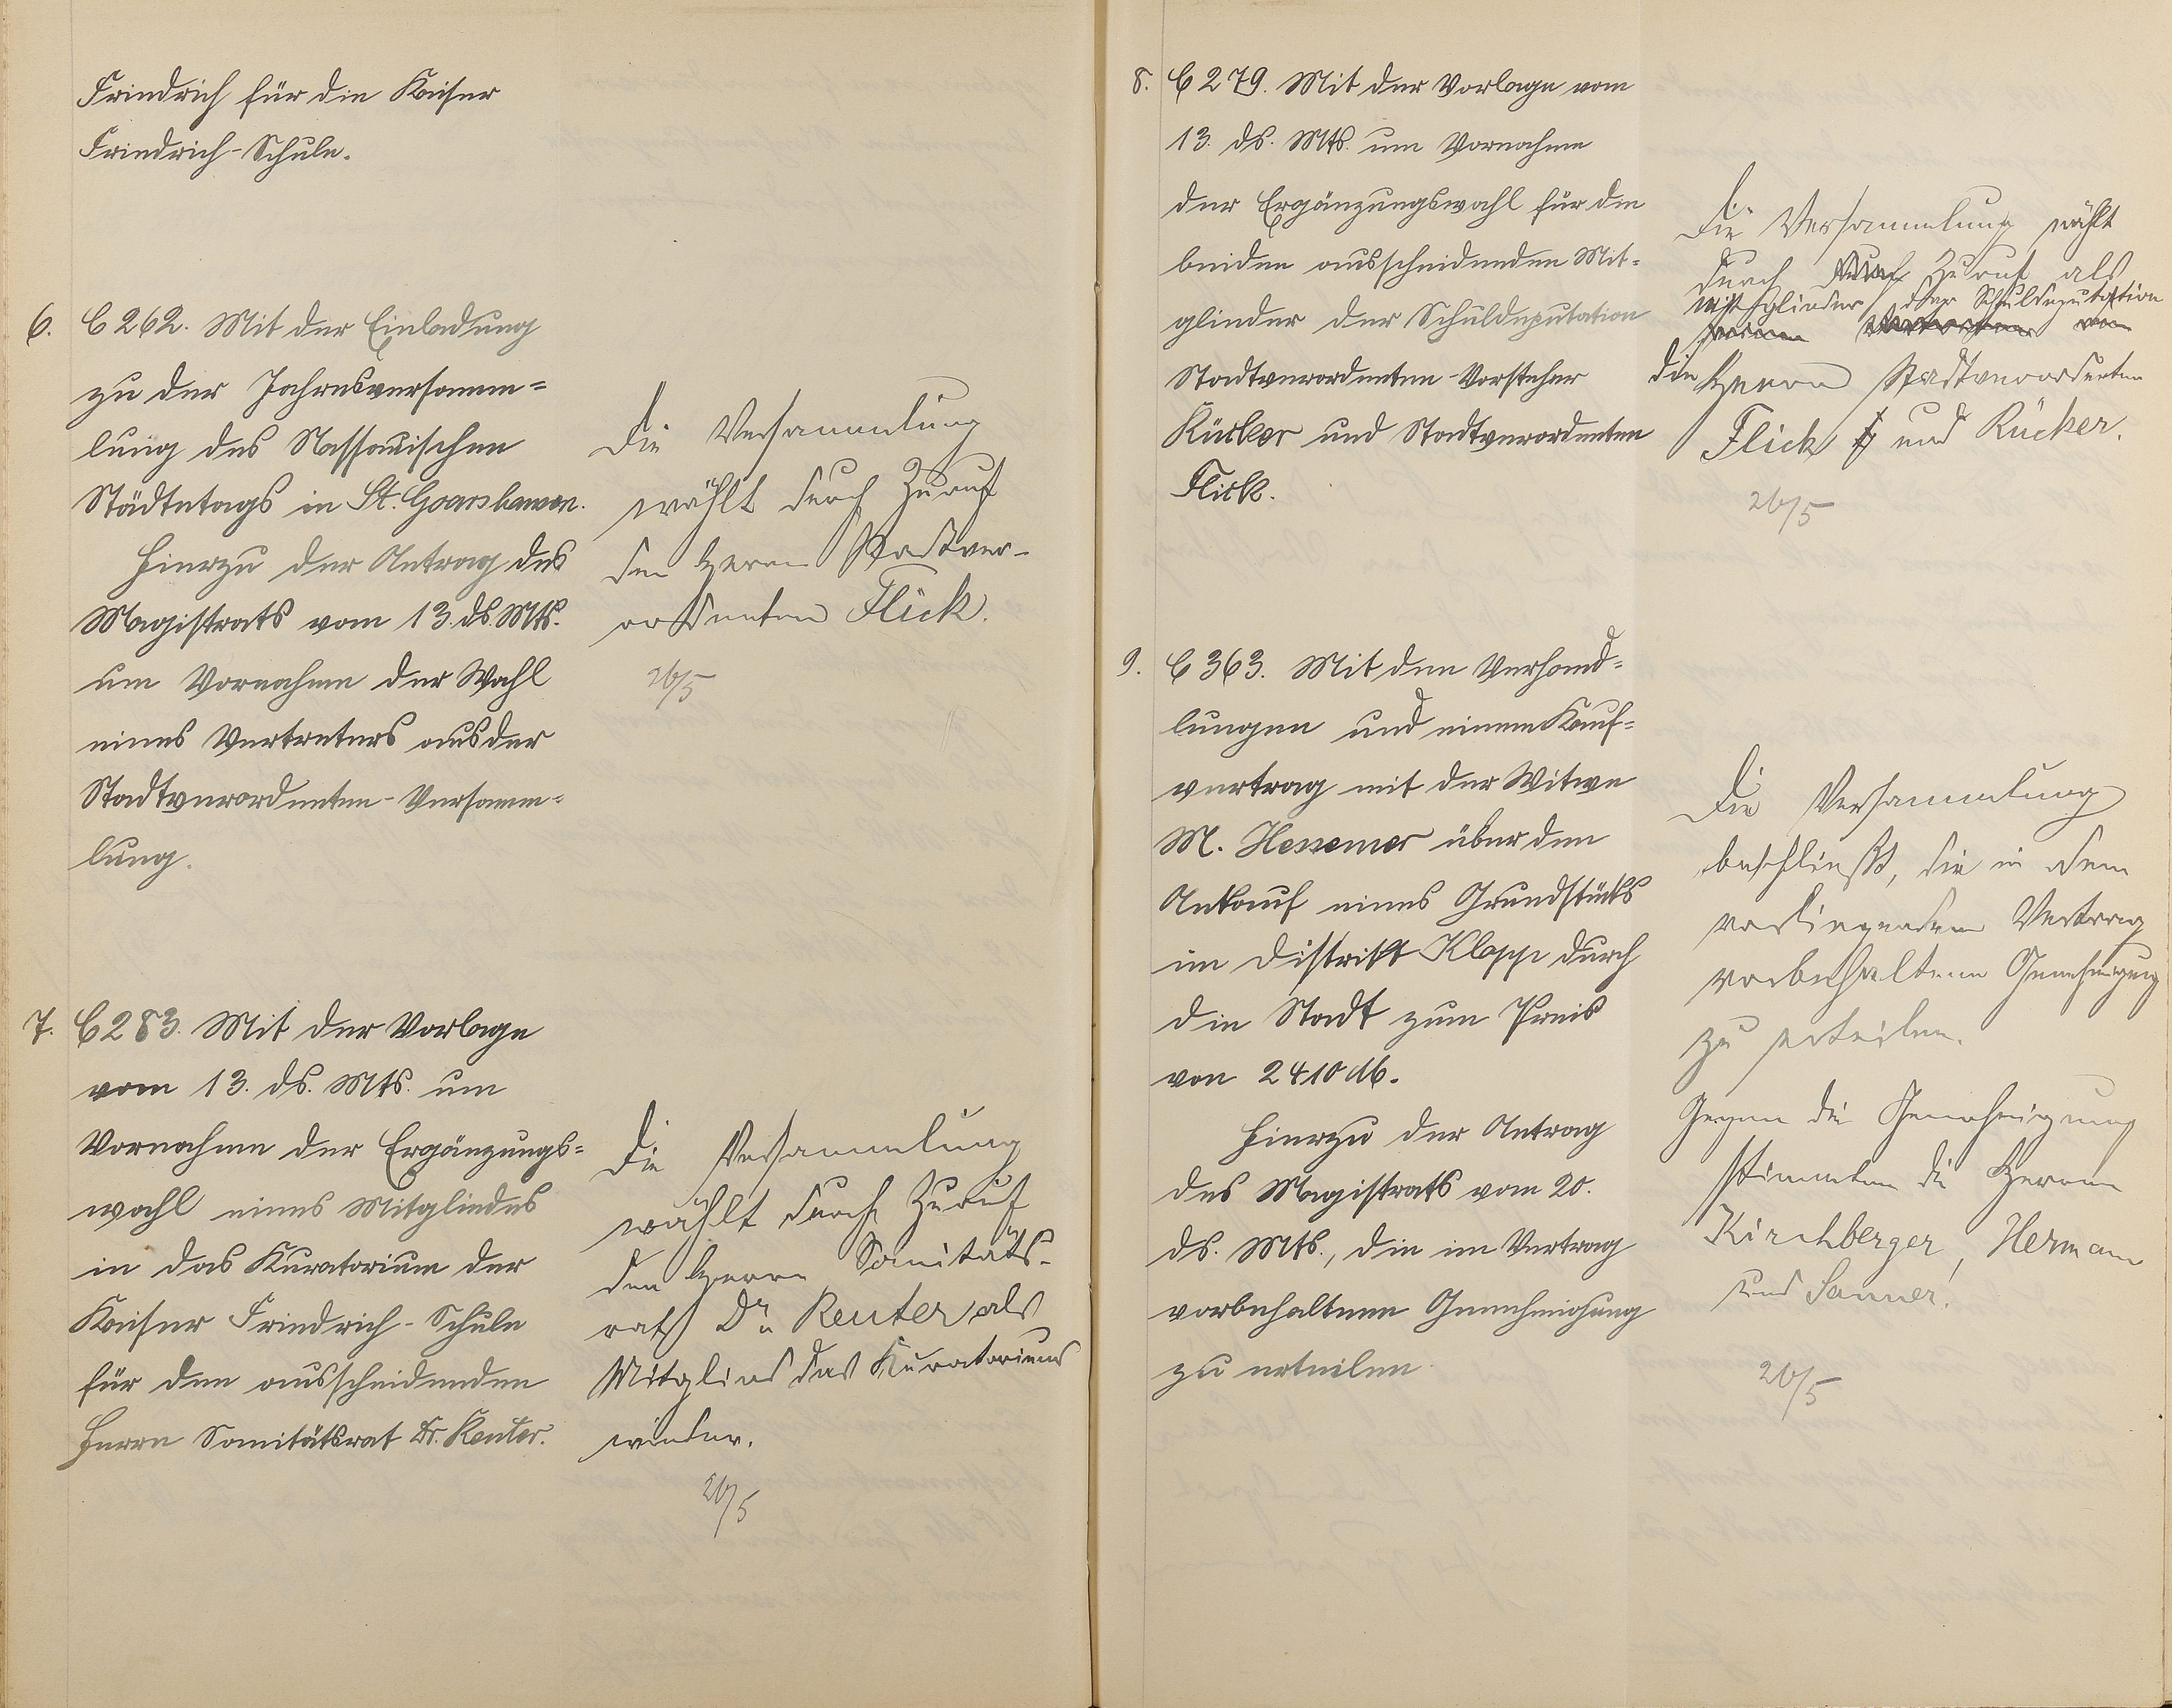 Friedrich für die Kaiser
Friedrich-Schule.
6. C 262. Mit der Einladung
zu der Jahresversamm=
lung des Nassauischen
Städtetags in St. Goarshausen.
Hierzu der Antrag des
Magistrats vom 13. ds. Mts.
um Vornahme der Wahl
eines Vertreters aus der
Stadtverordneten-Versamm=
lung.
Die Versammlung
wählt durch Zuruf
den Herrn Stadtver-
ordneten Flick.
26/5
7. C 283. Mit der Vorlage
vom 13. ds. Mts. um
Vornahme der Ergänzungs=
wahl eines Mitgliedes
in das Kuratorium der
Kaiser Friedrich-Schule
für den ausscheidenden
Herrn Sanitätsrat Dr. Reuter.
Die Versammlung
wählt durch Zuruf
den Herrn Sanitäts-
rath Dr. Reuter als
Mitglied des Kuratoriums
wieder.
26/5
8. C 279. Mit der Vorlage vom
13. ds. Mts. um Vornahme
der Ergänzungswahl für die
beiden ausscheidenden Mit=
glieder der Schuldeputation
Stadtverordneten-Vorsteher
Rücker und Stadtverordneten
Flick.
Die Versammlung wählt
durch Zuruf als
Mitglieder der Schuldeputation
die Herrn Stadtverordneten
Flick und Rücker.
26/5
9. C 363. Mit den Verhand=
lungen und einem Kauf=
vertrag mit der Witwe
M. Hessemer über den
Ankauf eines Grundstücks
im Distrikt Klopp durch
die Stadt zum Preis
von 2410 M.
Hierzu der Antrag
des Magistrats vom 20.
ds. Mts., die im Vertrag
vorbehaltene Genehmigung
zu erteilen.
Die Versammlung
beschließt, die in dem
vorliegenden Vertrag
vorbehaltene Genehmigung
zu erteilen.
Gegen die Genehmigung
stimmten die Herren
Kirchberger, Hermann
und Sanner.
26/5